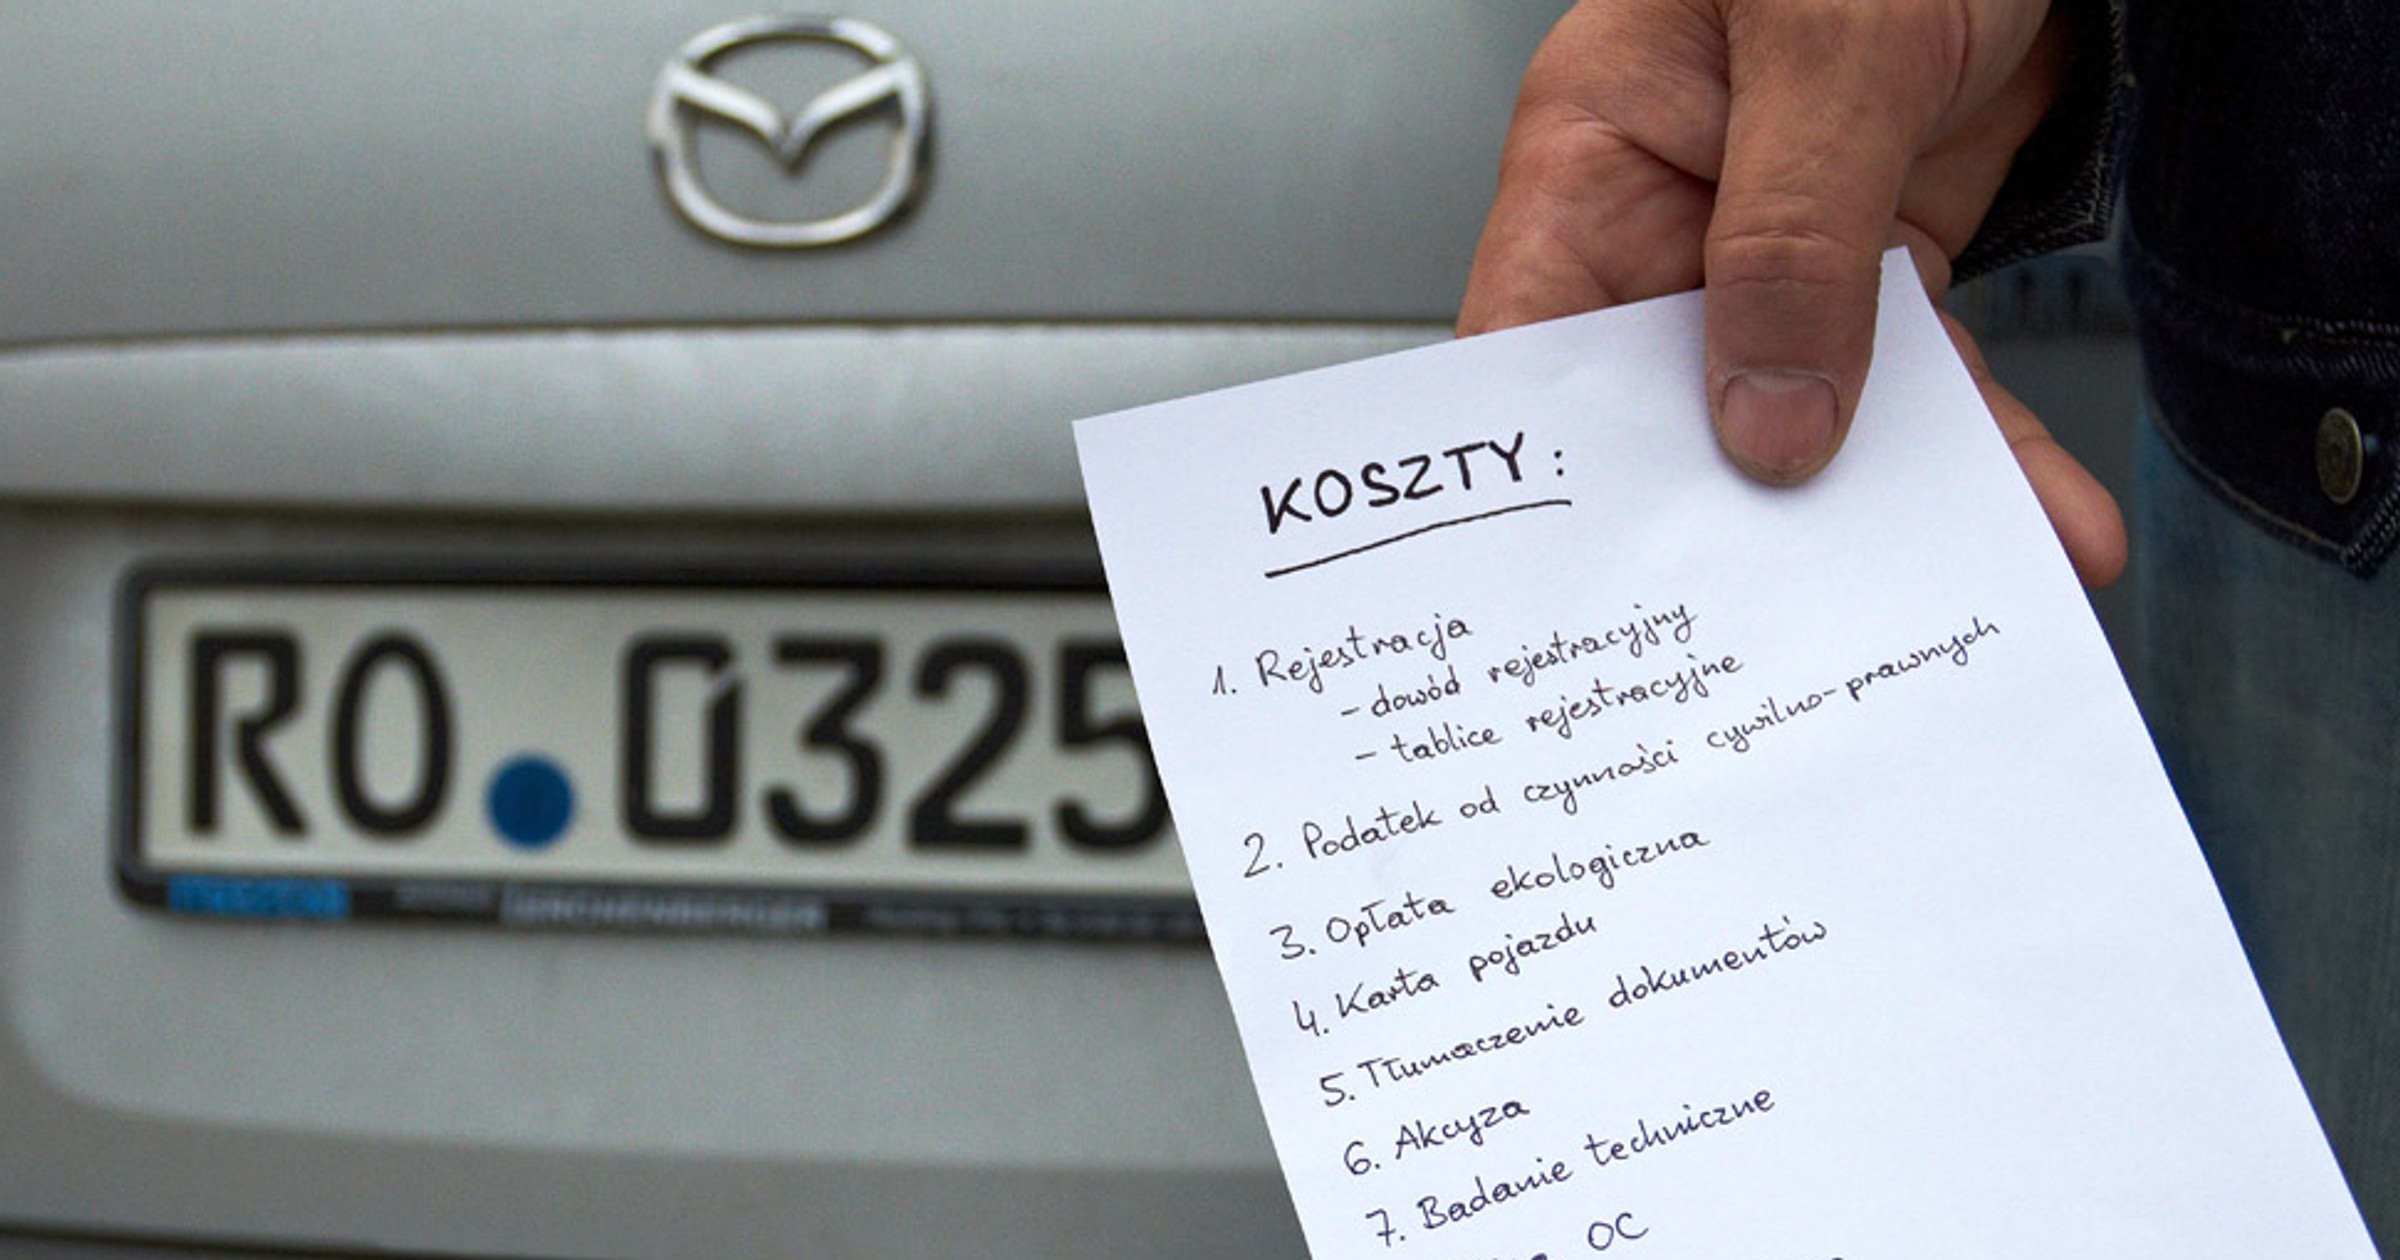 RO 0325
KOSZTY:
1. Rejestracja
- dowód rejestracyjny
- tablice rejestracyjne
2. Podatek od czynności cywilno-prawnych
3. Opłata ekologiczna
4. Karta pojazdu
5. Tłumaczenie dokumentów
6. Akcyza
7. Badanie techniczne
OC